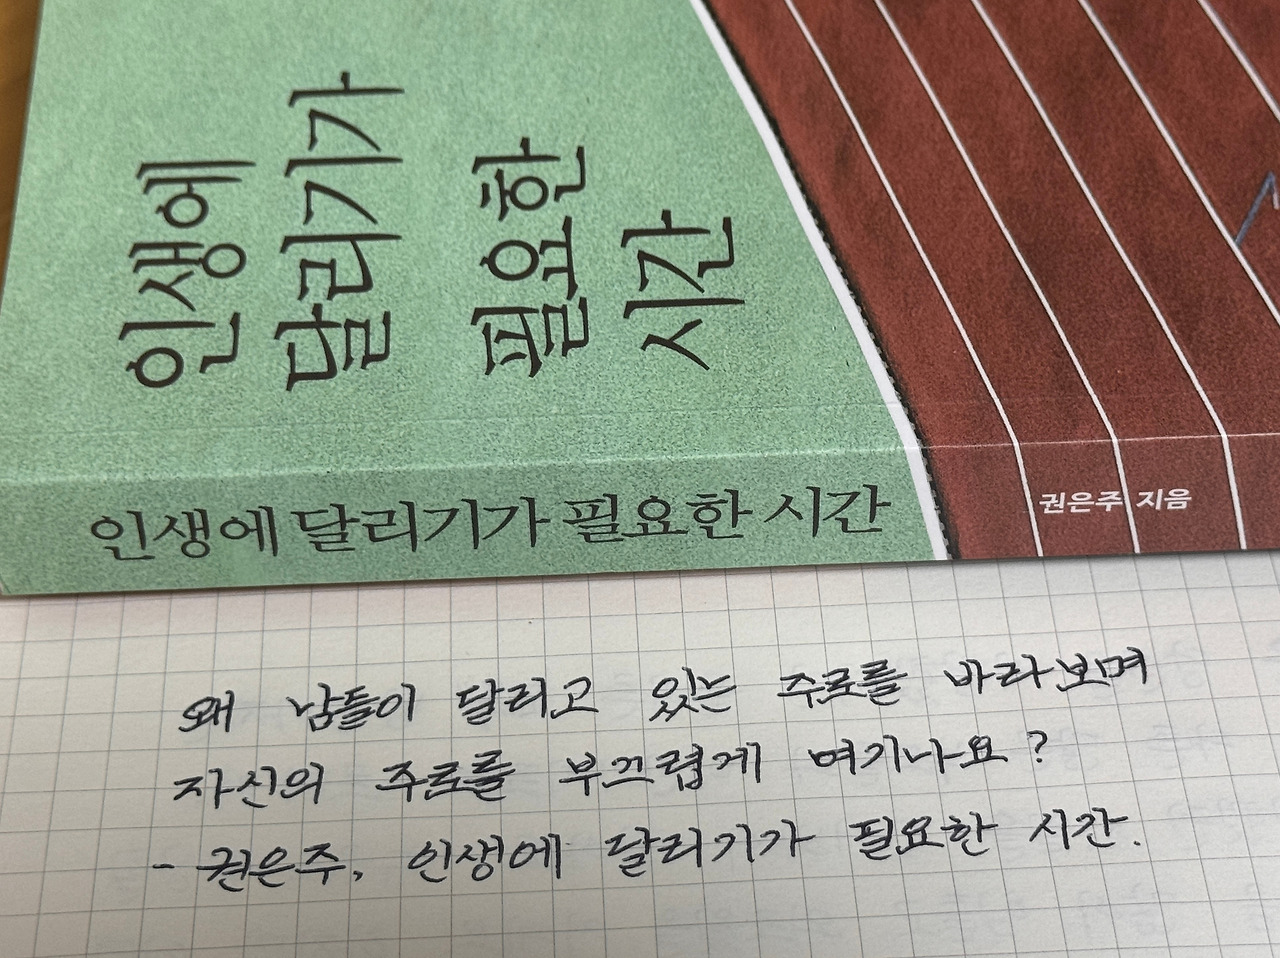 인생에
달리기가
필요한
시간
인생에 달리기가 필요한 시간
권은주 지음
왜 남들이 달리고 있는 주로를 바라보며
자신의 주로를 부끄럽게 여기나요?
- 권은주, 인생에 달리기가 필요한 시간.